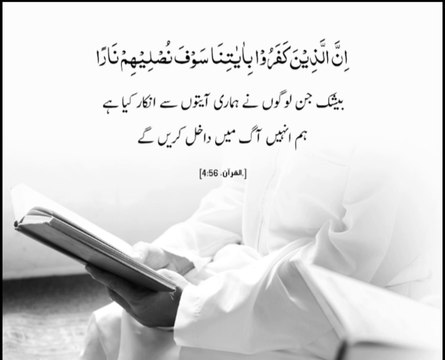 اِنَّ الَّذِيْنَ كَفَرُوْا بِاٰيٰتِنَا سَوْفَ نُصْلِيْهِمْ نَارًا
بیشک جن لوگوں نے ہماری آیتوں سے انکار کیا ہے
ہم انہیں آگ میں داخل کریں گے
[القرآن، 4:56]